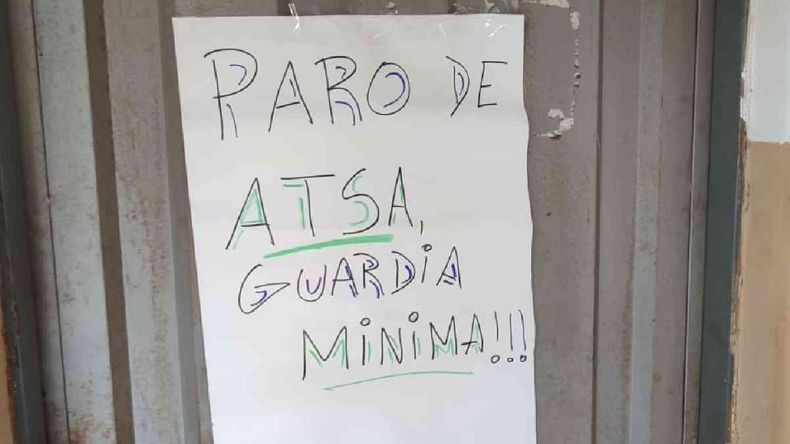 PARO DE
ATSA,
GUARDiA
MiNiMA!!!